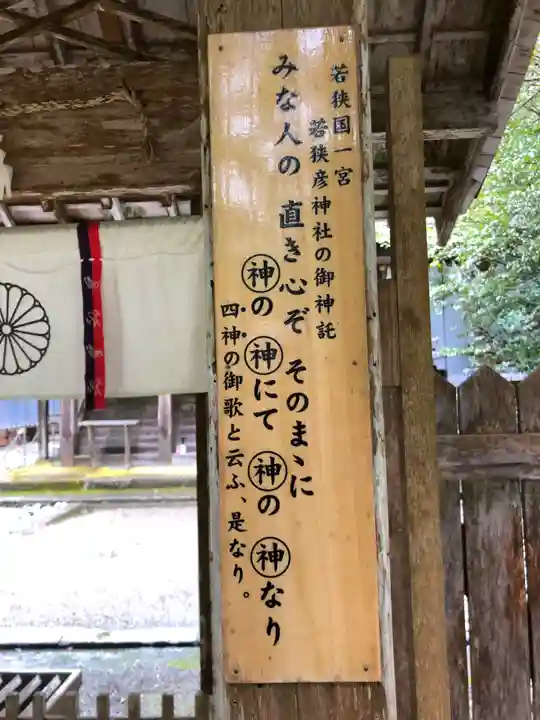 若狭国一宮
若狭彦神社の御神託
みな人の 直き心ぞ そのまゝに
神の 神にて 神の 神なり
四神の御歌と云ふ、是なり。